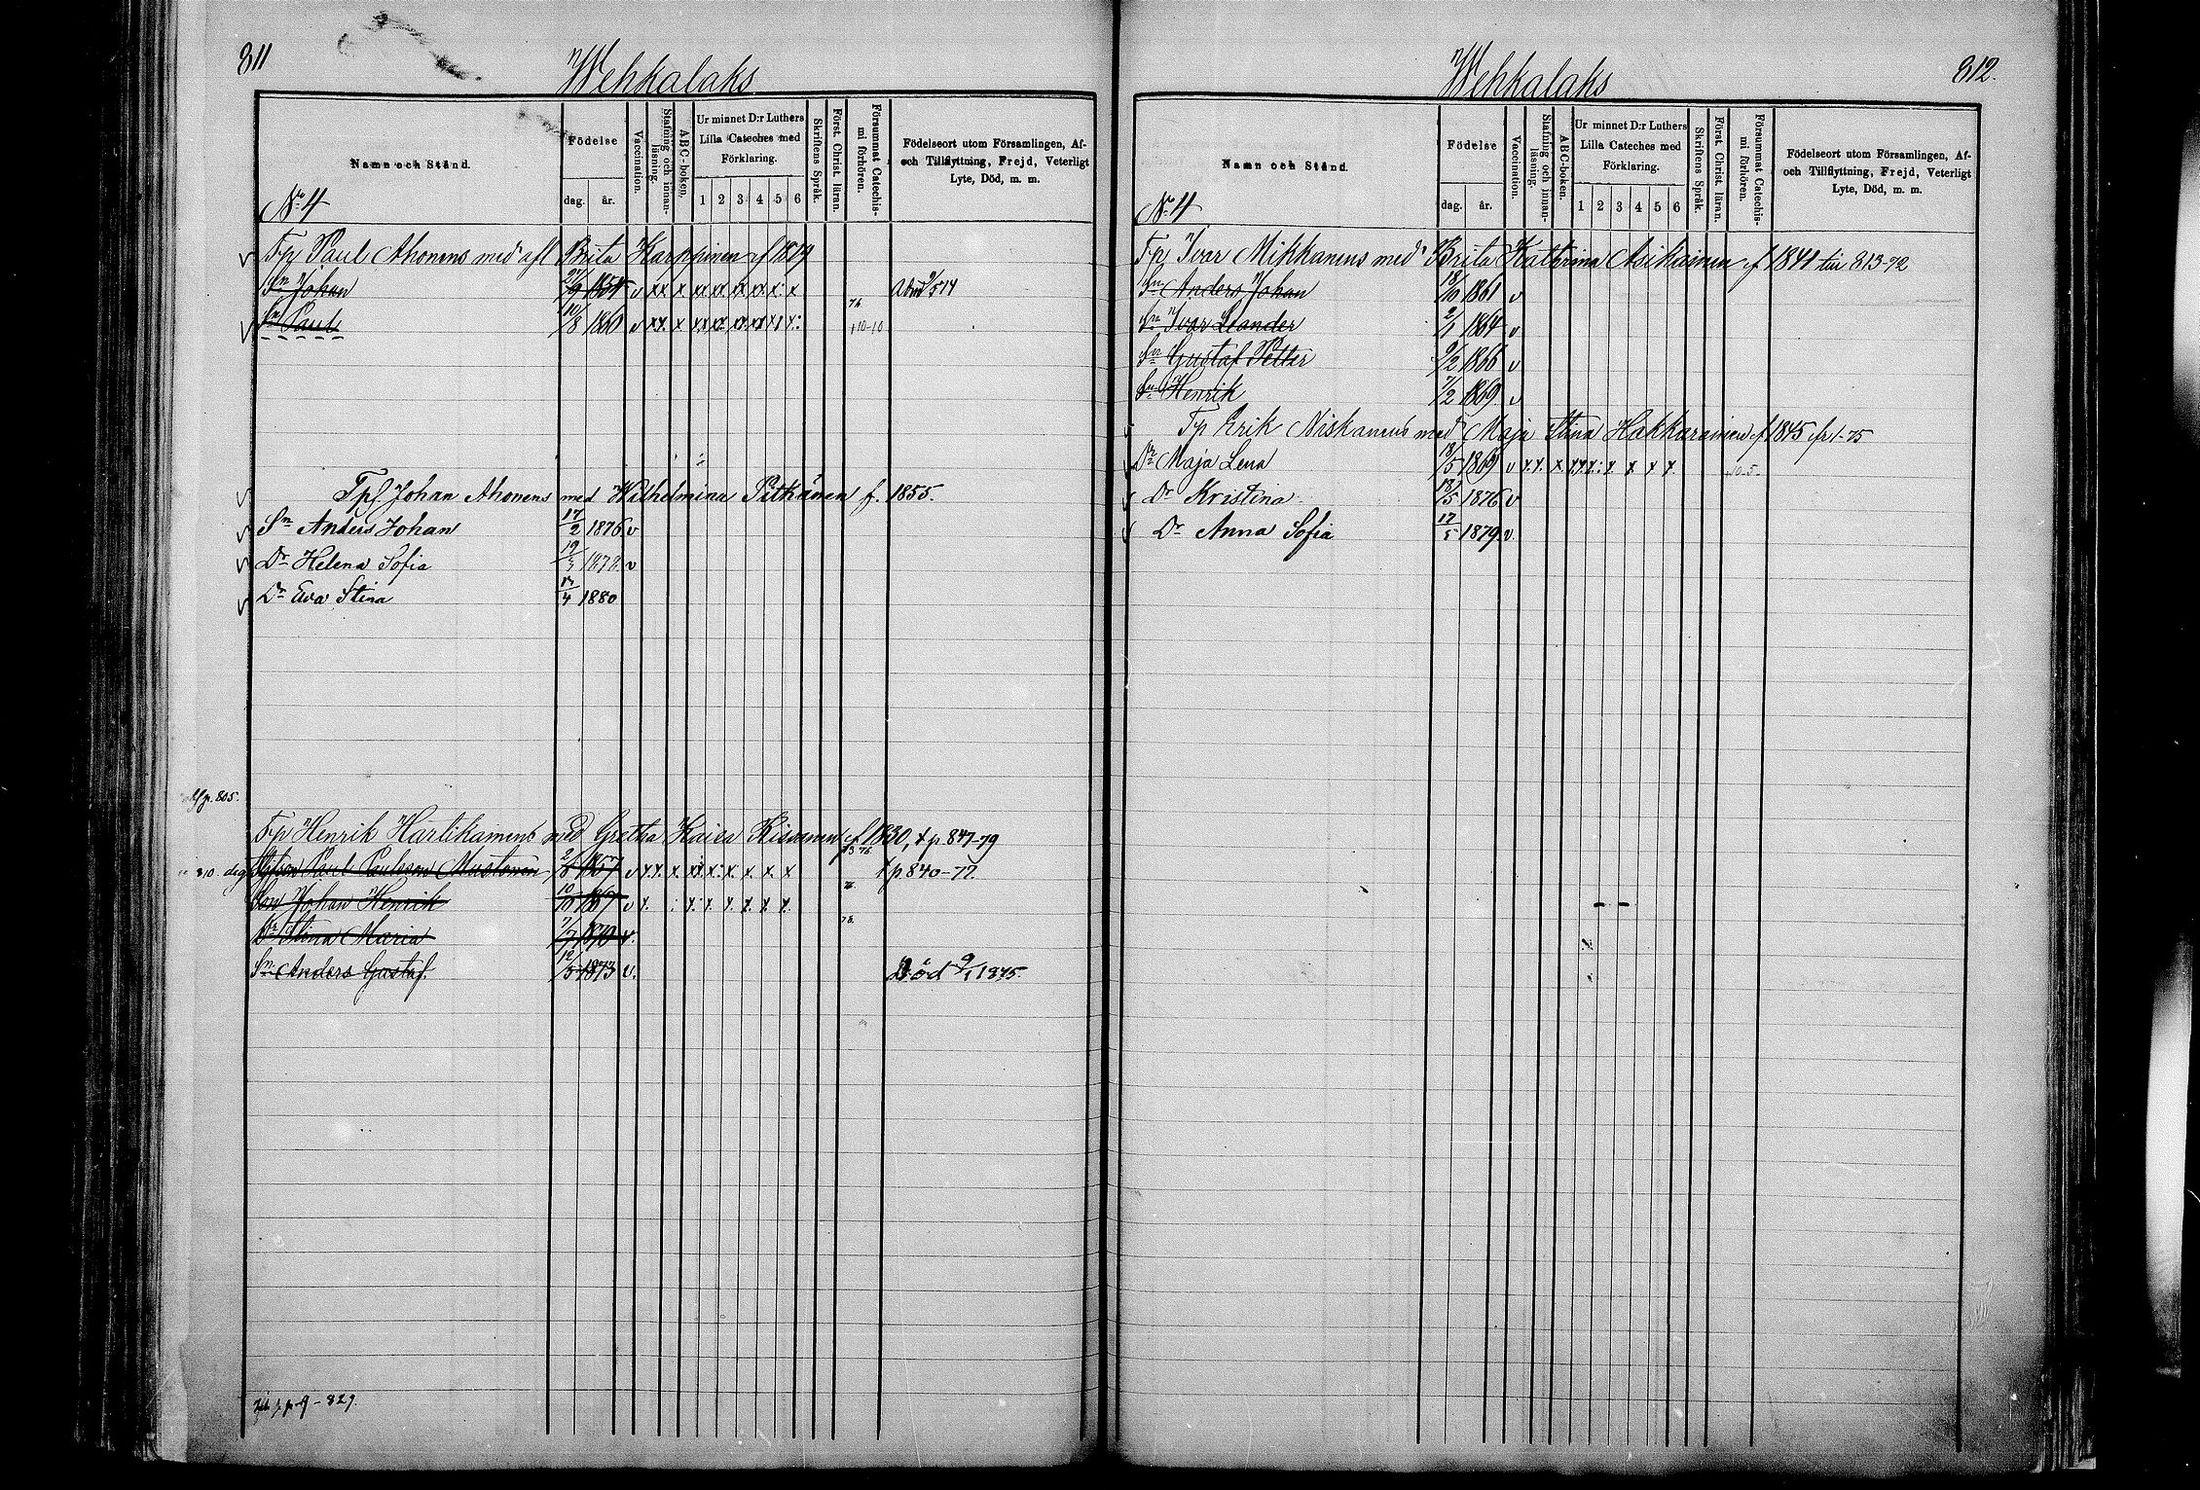 811
Wehkalaks
Namn och Stånd.
Födelse
dag.
år.
Vaccination.
Stafning och innanläsning.
ABC-boken.
Ur minnet D:r Luthers Lilla Cateches med Förklaring.
1 2 3 4 5 6
Skriftens Språk.
Först. Christ. läran.
Försummat Catechismi förhören.
Födelseort utom Församlingen, Af- och Tillflyttning, Frejd, Veterligt Lyte, Död, m. m.
No 4
Tp Paul Ahonens med afl Brita Karppinen f 1819
Sn Johan 1854 v xx x
Sn Paul 10/8 1860 v xx x 76 +10-10
Tpf Johan Ahonens med Wilhelmina Pitkänen f. 1855.
Sn Anders Johan 17/2 1876 v
Dr Helena Sofia 19/3 1878. v
Dr Eva Stina 17/4 1880
p. 805.
Tp Henrik Hartikainens med Gretha Kaisa f 1830, p 847-79
Paul Paulsson Mustonen 1857 v x x x p 840-77.
Son Johan Henrik 10/10 1867 v x
Dr Stina Maria 7/7 1870 v.
Sn Anders Gustaf. 12/5 1873 v. Död 9/1 1875.
829.
812.
Wehkalaks
Namn och Stånd.
Födelse
dag.
år.
Vaccination.
Stafning och innanläsning.
ABC-boken.
Ur minnet D:r Luthers Lilla Cateches med Förklaring.
1 2 3 4 5 6
Skriftens Språk.
Först. Christ. läran.
Försummat Catechismi förhören.
Födelseort utom Församlingen, Af- och Tillflyttning, Frejd, Veterligt Lyte, Död, m. m.
No 4
Tp Ivar Mikkanens med Brita Katterina Asikainen f 1841 till 813-72
Sn Anders Johan 18/10 1861 v
Sn Ivar Leander 2/1 1864 v
Sn Gustaf Petter 9/2 1866 v
Sn Henrik 7/2 1869 v
Tp Erik Niskanens med Maja Stina Hakkarainen f 1845 fr 1-75
Dr Maja Lena 13/5 1869 v x x x xx x: x x x x 10.5.
Dr Kristina 18/5 1876 v
Dr Anna Sofia 17/5 1879 v.